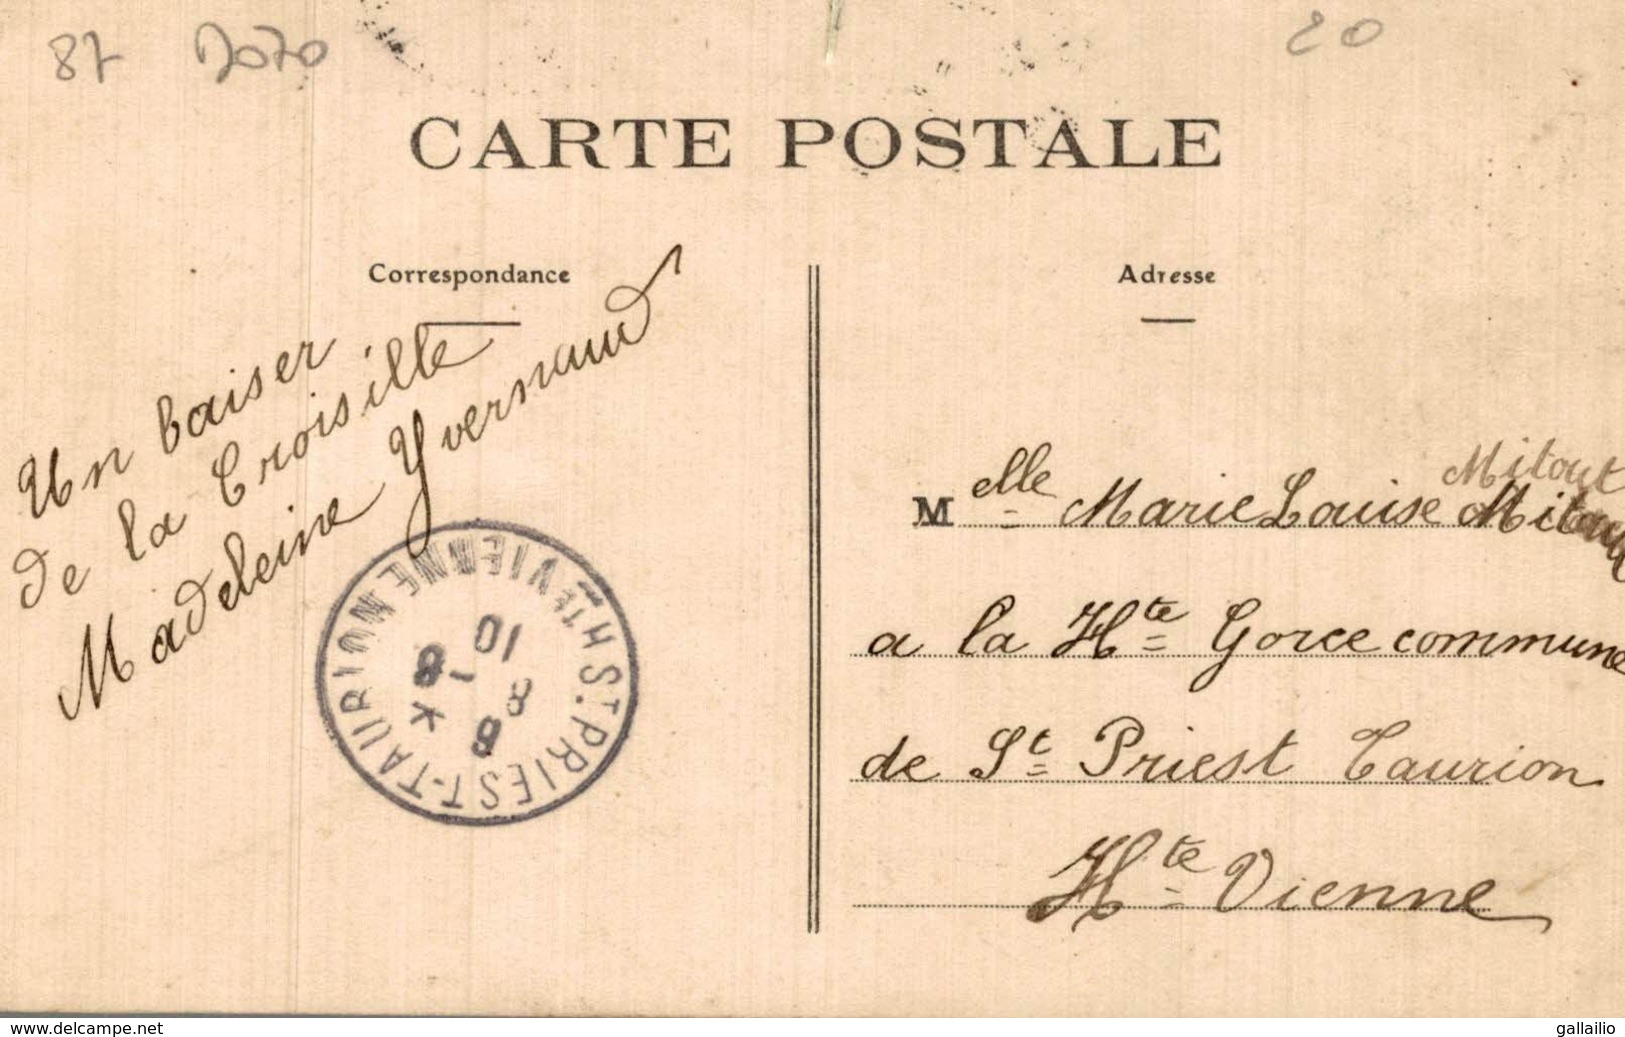 87 7070
20
CARTE POSTALE
Correspondance
Adresse
Un baiser
de la Croisille
Madeleine Yvernaud
ST PRIEST-TAURION
HTE VIENNE
10
8 -8
8
Mitout
Melle Marie Louise
a la Hte Gorce commune
de St Priest Taurion
Hte Vienne
www.delcampe.net
gallailio